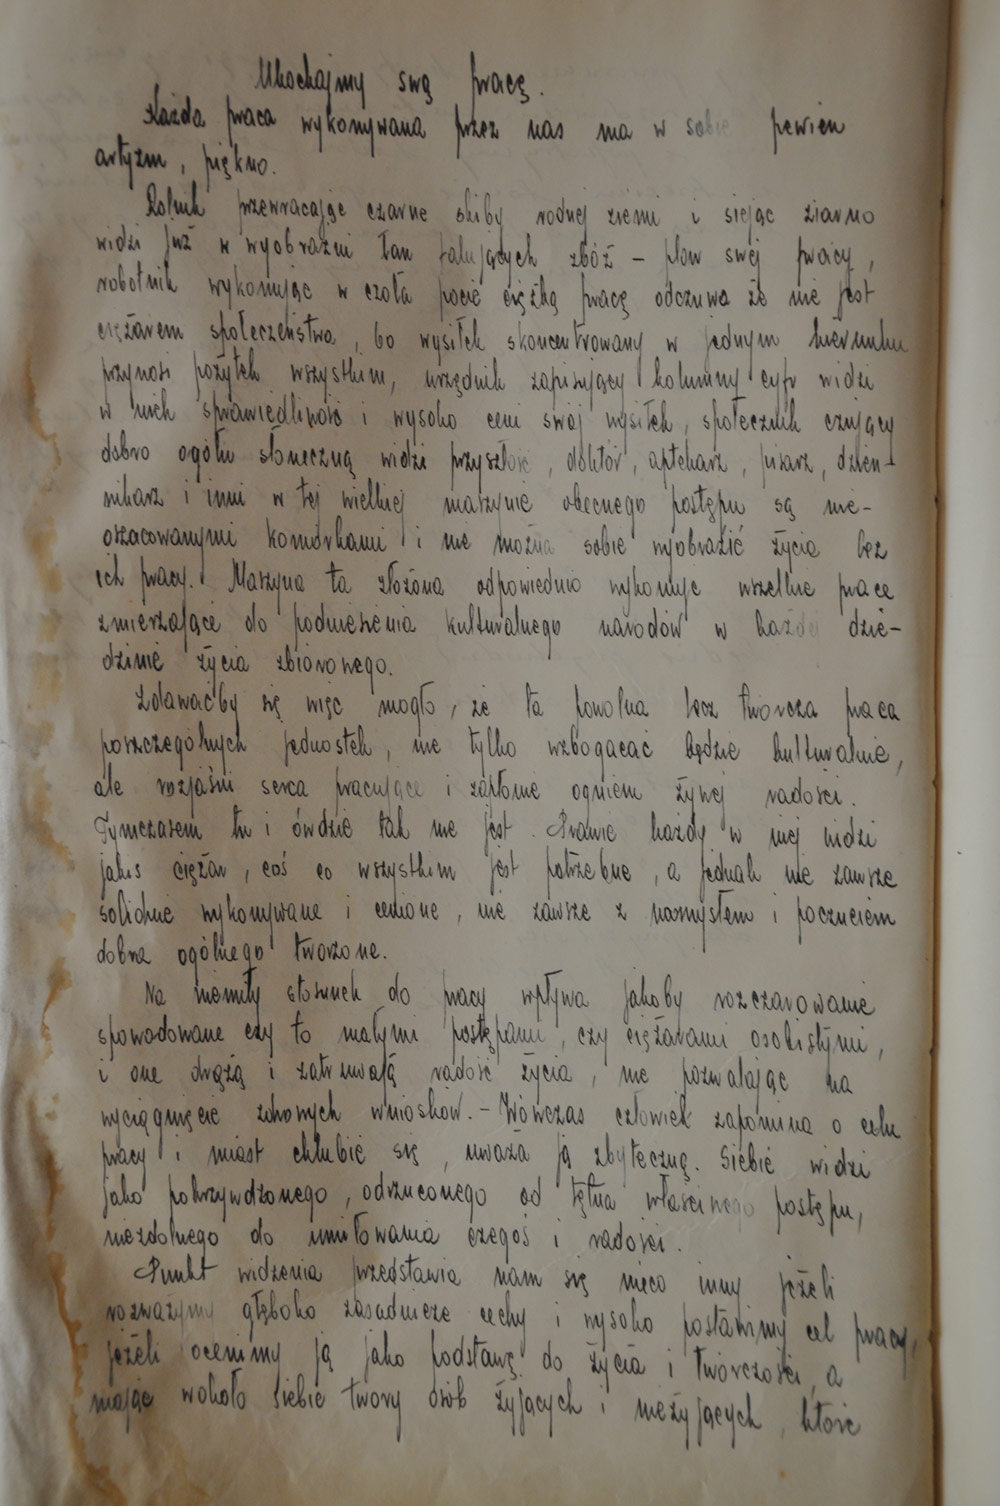 Ukochajmy swą pracę.
Każda praca wykonywana przez nas ma w sobie pewien
artyzm, piękno.
Rolnik przewracając czarne skiby rodnej ziemi i siejąc ziarno
widzi już w wyobraźni łan falujących zbóż – plon swej pracy,
robotnik wykonując w czoła pocie ciężką pracę odczuwa że nie jest
ciężarem społeczeństwa, bo wysiłek skoncentrowany w jednym kierunku
przynosi pożytek wszystkim, urzędnik zapisujący kolumny cyfr widzi
w nich sprawiedliwość i wysoko ceni swój wysiłek, społecznik czujący
dobro ogółu słoneczną widzi przyszłość, doktór, aptekarz, pisarz, dzien-
nikarz i inni w tej wielkiej maszynie obecnego postępu są nie-
oszacowanymi komórkami i nie można sobie wyobrazić życia bez
ich pracy. Maszyna ta złożona odpowiednio wykonuje wszelkie prace
zmierzające do podniesienia kulturalnego narodów w każdej dzie-
dzinie życia zbiorowego.
Zdawaćby się więc mogło, że ta powolna lecz twórcza praca
poszczególnych jednostek, nie tylko wzbogacać będzie kulturalnie,
ale rozjaśni serca pracujące i zapłonie ogniem żywej radości.
Tymczasem tu i ówdzie tak nie jest. Prawie każdy w niej widzi
jakiś ciężar, coś co wszystkim jest potrzebne, a jednak nie zawsze
solidnie wykonywane i cenione, nie zawsze z namysłem i poczuciem
dobra ogólnego tworzone.
Na niemiły stosunek do pracy wpływa jakoby rozczarowanie
spowodowane czy to małymi postępami, czy ciężarami osobistymi,
i one drążą i zatruwają radość życia, nie pozwalając na
wyciągnięcie zdrowych wniosków. – Wówczas człowiek zapomina o celu
pracy i miast chlubić się, uważa ją zbyteczną. Siebie widzi
jako pokrzywdzonego, odrzuconego od tętna właściwego postępu,
niezdolnego do umiłowania czegoś i radości.
Punkt widzenia przedstawia nam się nieco inny jeżeli
rozważymy głęboko zasadnicze cechy i wysoko postawimy cel pracy,
jeżeli ocenimy ją jako podstawę do życia i twórczości, a
mając wokoło siebie twory osób żyjących i nieżyjących, które